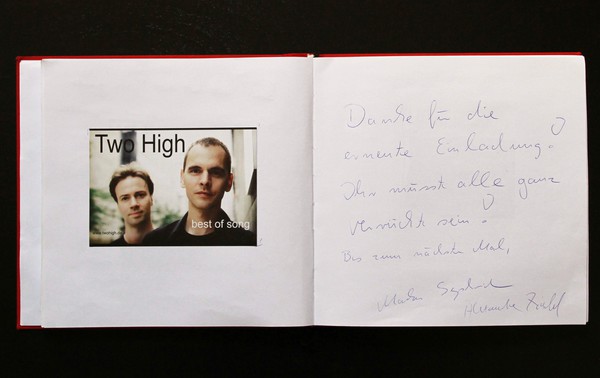 Two High
best of song
Danke für die
erneute Einladung!
Ihr müsst alle ganz
verrückt sein!
Bis zum nächsten Mal,